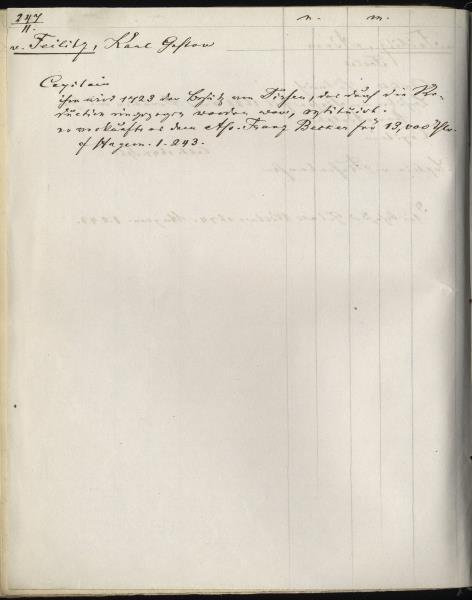 247
II.
n. m.
v. Feilitz, Karl Gustav
Capitain
ihm wird 1723 der Besitz von, der durch die Re-
duction eingezogen worden war, restituirt.
er verkaufte es dem Ass. Franz Becker für 13,000 Thlr.
cf Hagem. 1. 243.